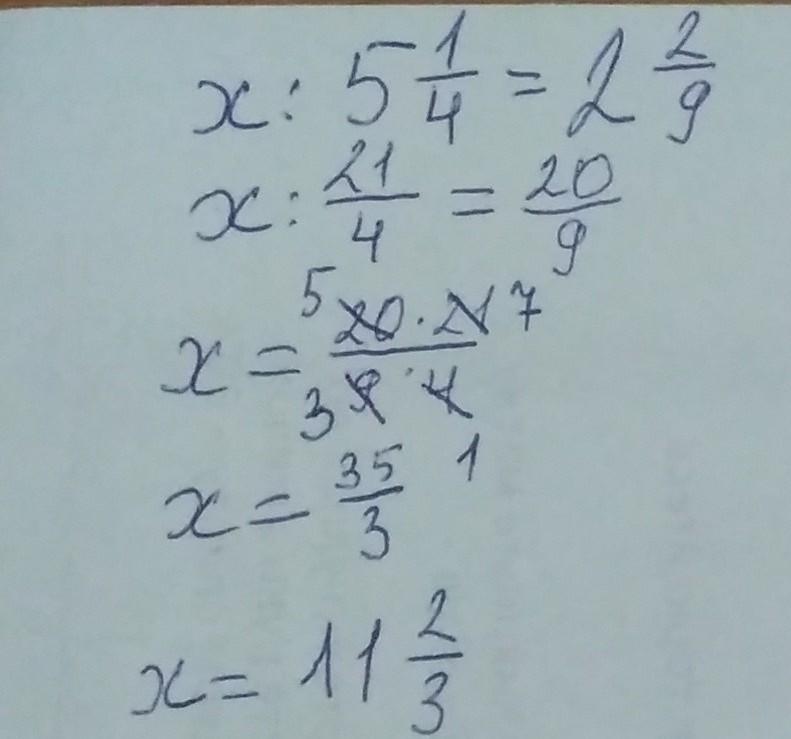 x : 5 1/4 = 2 2/9
x : 21/4 = 20/9
5 20 · 21 7
x = ―
3 9 · 4 1
x = 35/3
x = 11 2/3